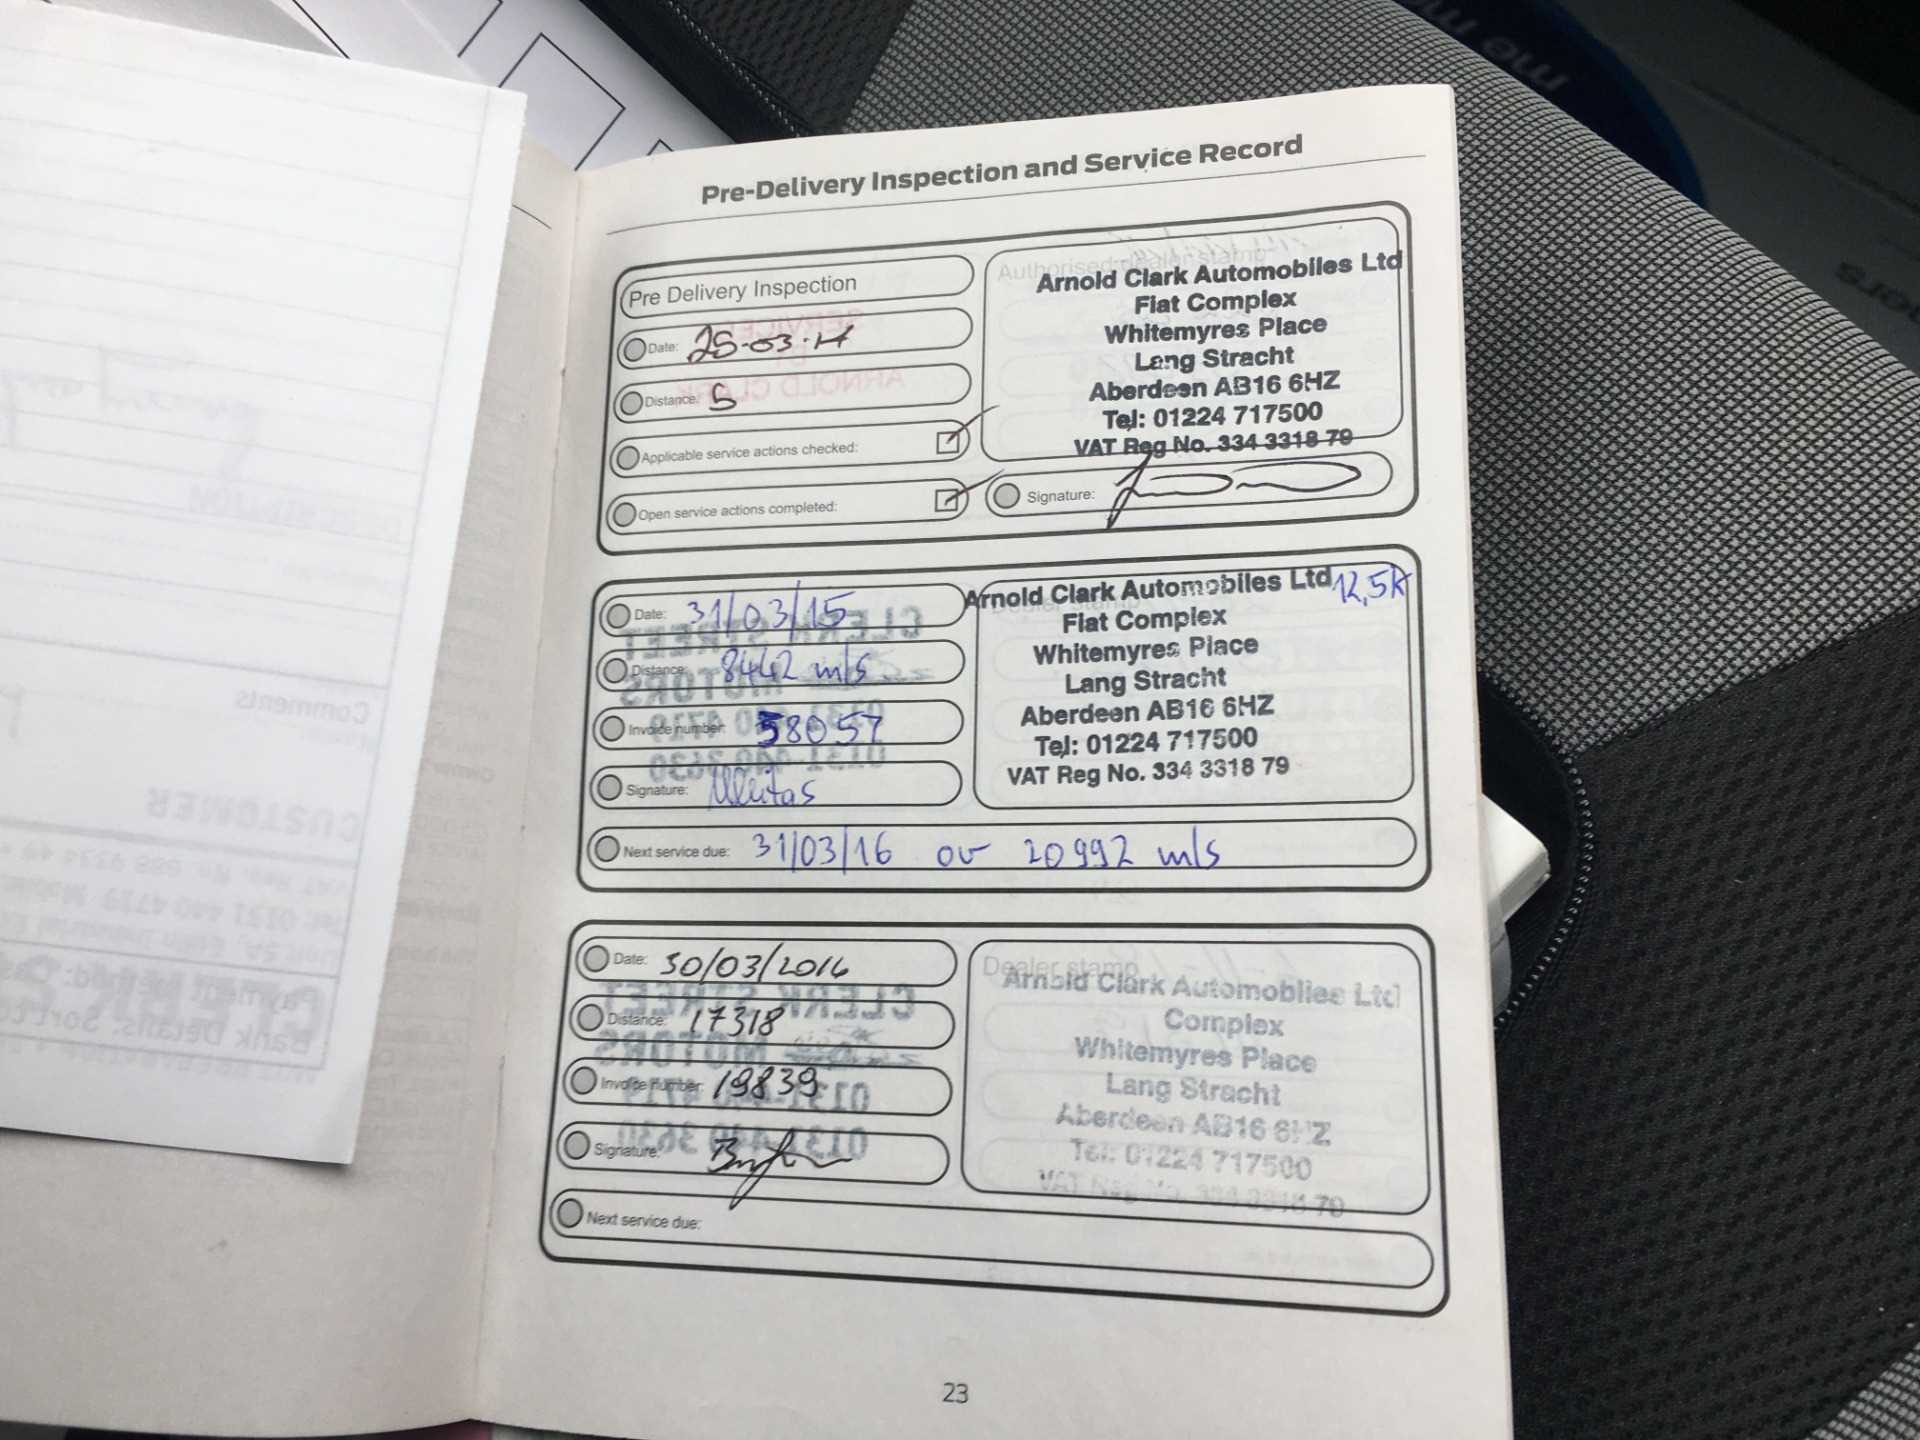 Pre-Delivery Inspection and Service Record
Pre Delivery Inspection
Date: 28-03-14
Distance: 5
Applicable service actions checked:
Open service actions completed:
Authorised dealer stamp
Arnold Clark Automobiles Ltd
Fiat Complex
Whitemyres Place
Lang Stracht
Aberdeen AB16 6HZ
Tel: 01224 717500
VAT Reg No. 334 3318 79
Signature:
Date: 31/03/15
Distance: 8442 m/s
Invoice number: 58057
Signature:
Dealer stamp
Arnold Clark Automobiles Ltd 12,5k
Fiat Complex
Whitemyres Place
Lang Stracht
Aberdeen AB16 6HZ
Tel: 01224 717500
VAT Reg No. 334 3318 79
Next service due: 31/03/16 or 20992 m/s
Date: 30/03/2016
Distance: 17318
Invoice number: 19839
Signature:
Dealer stamp
Arnold Clark Automobiles Ltd
Complex
Whitemyres Place
Lang Stracht
Aberdeen AB16 6HZ
Tel: 01224 717500
VAT Reg No. 334 3318 79
Next service due:
23